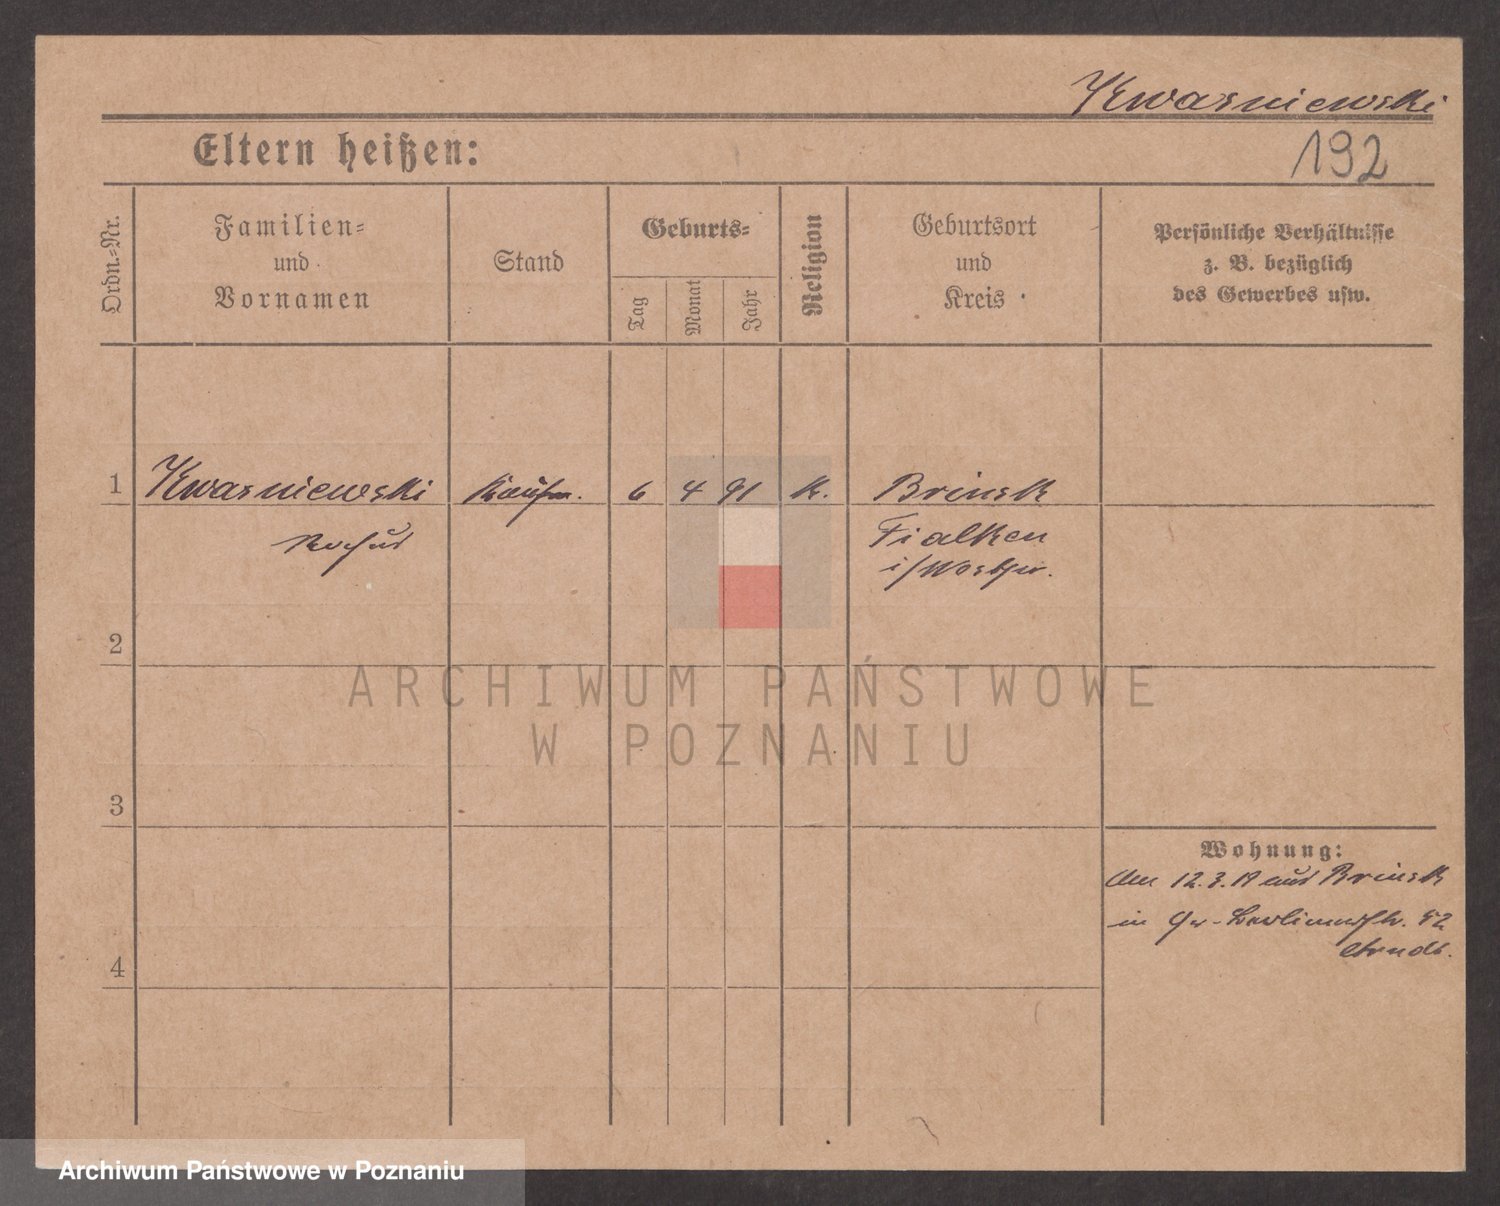 Kwasniewski
Eltern heißen:
192
Ordn.-Nr.
Familien-
und
Vornamen
Stand
Geburts-
Tag
Monat
Jahr
Religion
Geburtsort
und
Kreis
Persönliche Verhältnisse
z. B. bezüglich
des Gewerbes usw.
1 Kwasniewski Kaufm. 6 4 91 k. Brinsk
Rochus Fialken
i/Westpr.
2
ARCHIWUM PAŃSTWOWE
W POZNANIU
3
Wohnung:
Am 12.3.19 aus Brinsk
in Gr-Berlinerstr. 52
4
Archiwum Państwowe w Poznaniu